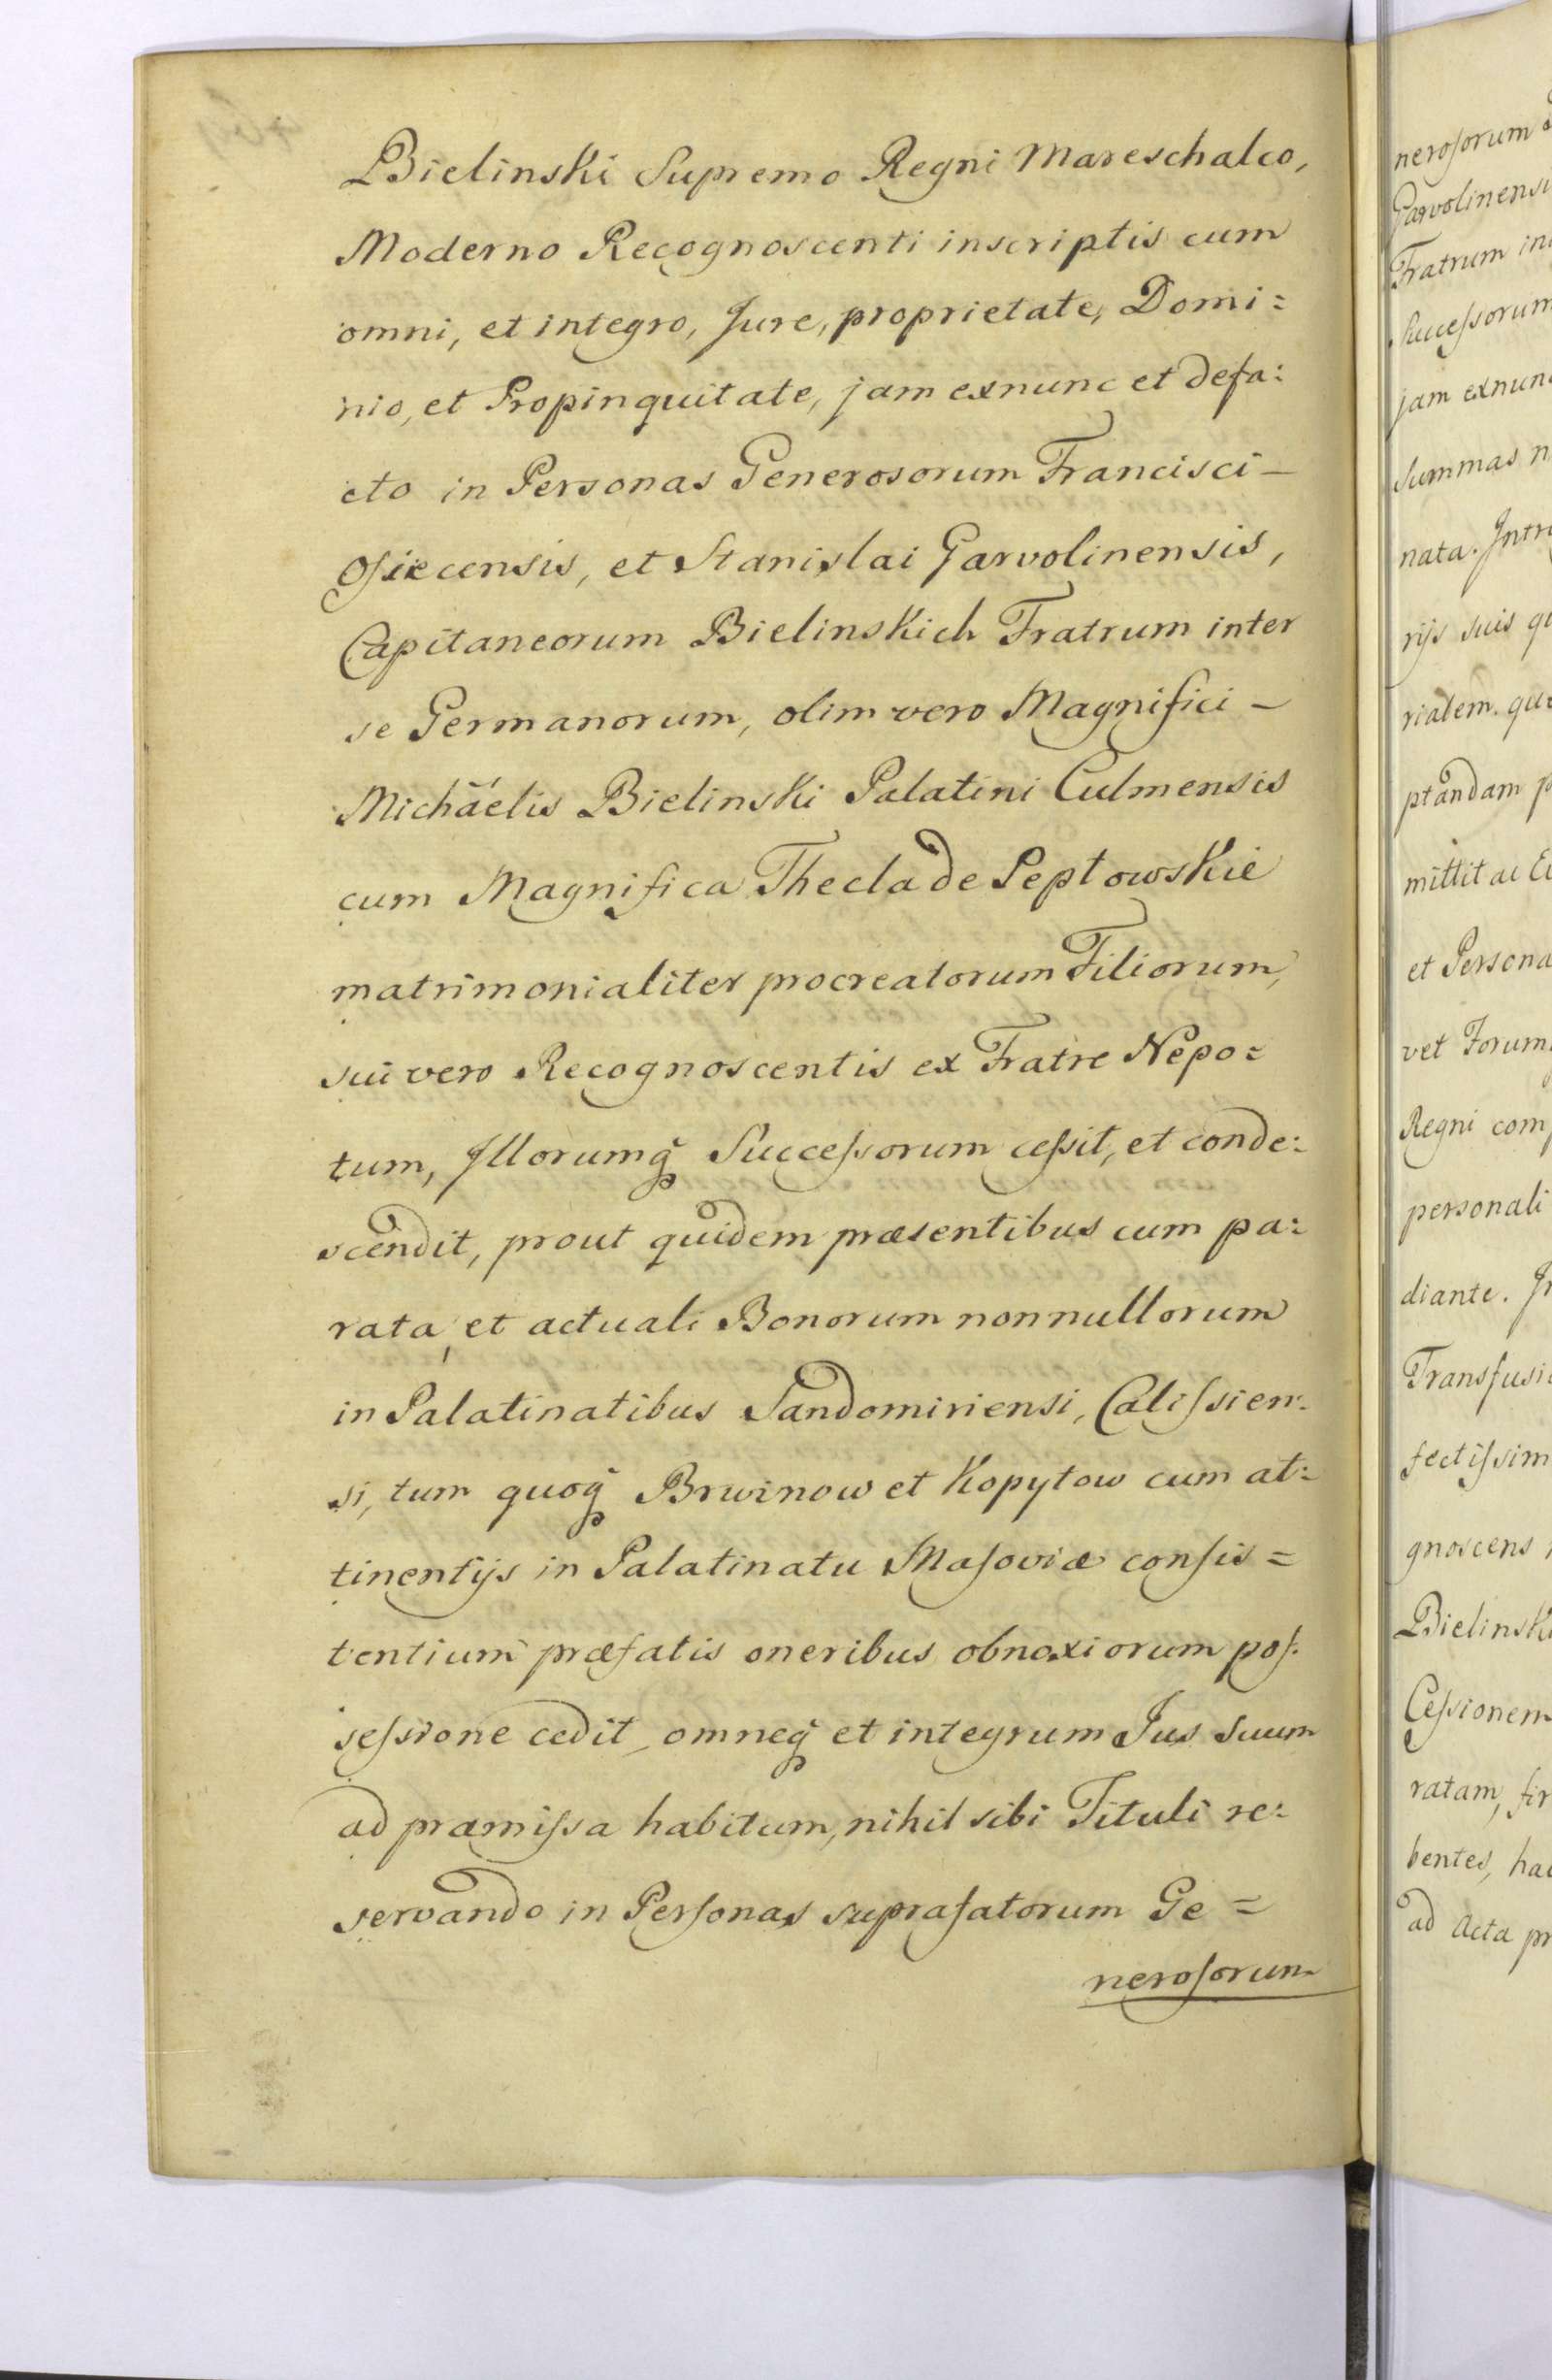 Bielinski Supremo Regni Mareschalco,
Moderno Recognoscenti inscriptis cum
omni, et integro, Jure, proprietate, Domi=
nio, et Propinquitate, jam exnunc et defa:
cto in Personas Generosorum Francisci –
Osiecensis, et Stanislai Garvolinensis,
Capitaneorum Bielinskich Fratrum inter
se Germanorum, olim vero Magnifici –
Michäelis Bielinski Palatini Culmensis
cum Magnifica Thecla de Peptowskie
matrimonialiter procreatorum Filiorum,
sui vero Recognoscentis ex Fratre Nepo=
tum, Illorumq̃ Successorum cessit, et conde:
scendit, prout quidem præsentibus cum pa:
rata, et actuali Bonorum nonnullorum
in Palatinatibus Sandomiriensi, Calissien:
si, tum quoq̃ Brwinow et Kopytow cum at:
tinentijs in Palatinatu Masoviæ consis=
tentium præfatis oneribus obnoxiorum pos:
sessione cedit, omneq̃ et integrum Jus Suum
ad præmissa habitum, nihil sibi Tituli re:
servando in Personas suprafatorum Ge=
nerosorum
nerosorum
Garvolinensi
Fratrum in
Successorum
jam exnunc
Summas n
nata. Intr
rijs suis qu
rialem. qu
ptandam p
mittit ac E
et Persona
vet Forum
Regni com
personali
diante. In
Transfusi
fectissim
gnoscens
Bielinsk
Cessionem
ratam, fir
bentes, ha
ad Acta pr